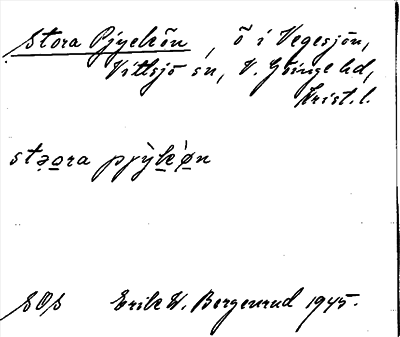 Stora Pjyckön, ö i Vegesjön,
Vittsjö sn, V. Göinge hd,
Krist. l.
stə̣o̲ra pjỳk̲'ø̲n
SOS Erik W. Bergenrud 1945.